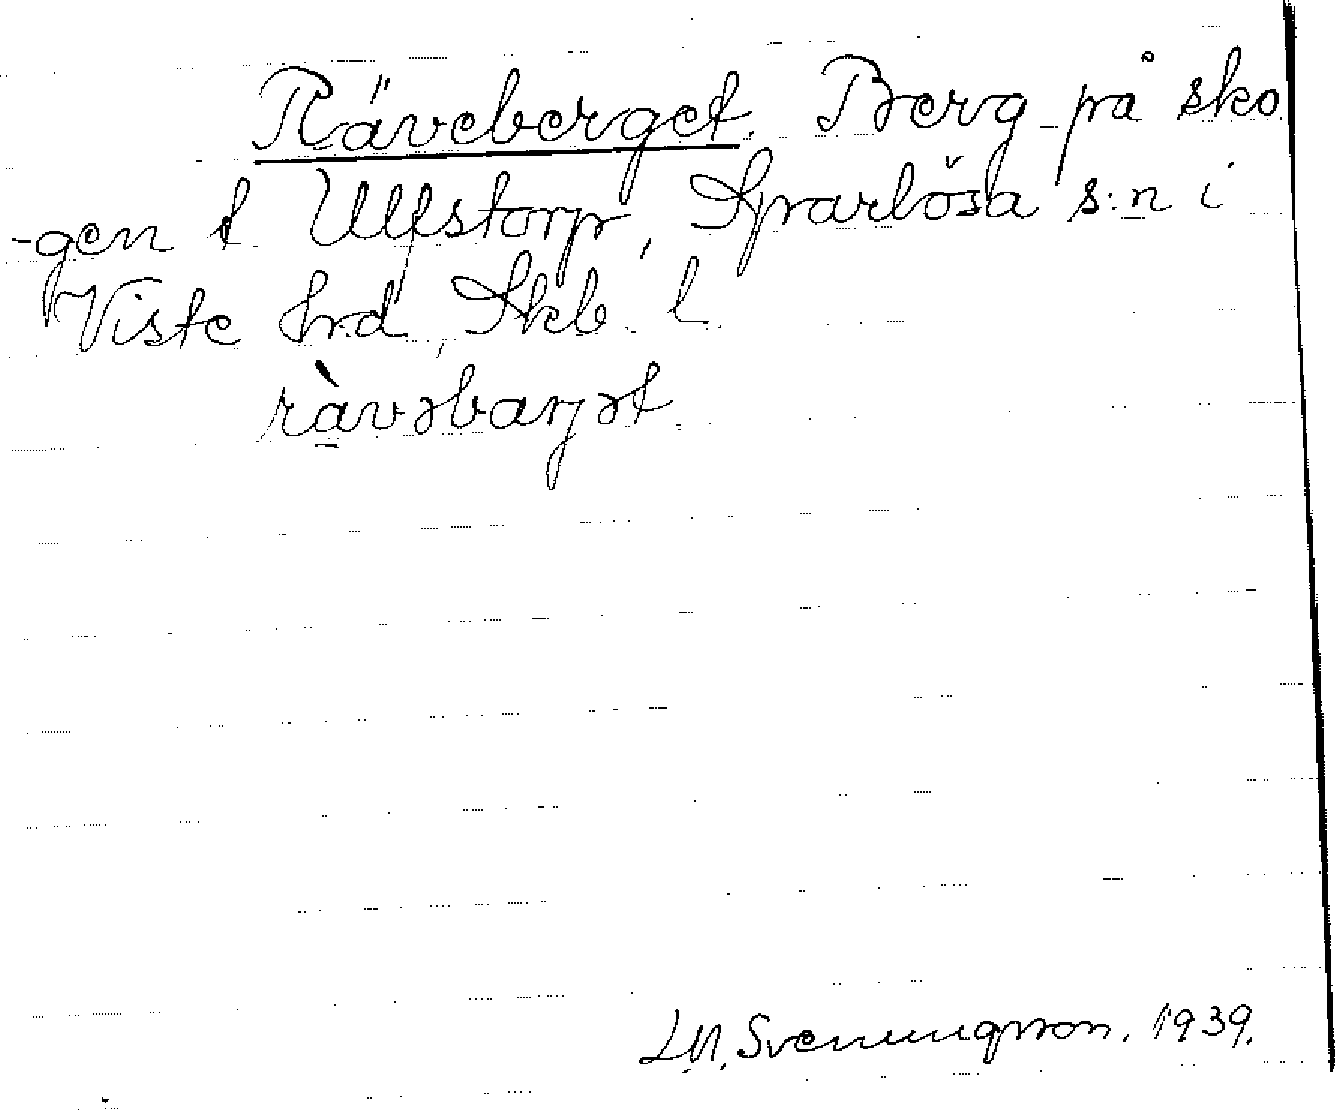 Räveberget. Berg på sko
-gen t Ulfstorp, Sparlösa s:n i
Viste hrd, Skb. l.
ràvəbarjət.
Svenungsson. 1939.